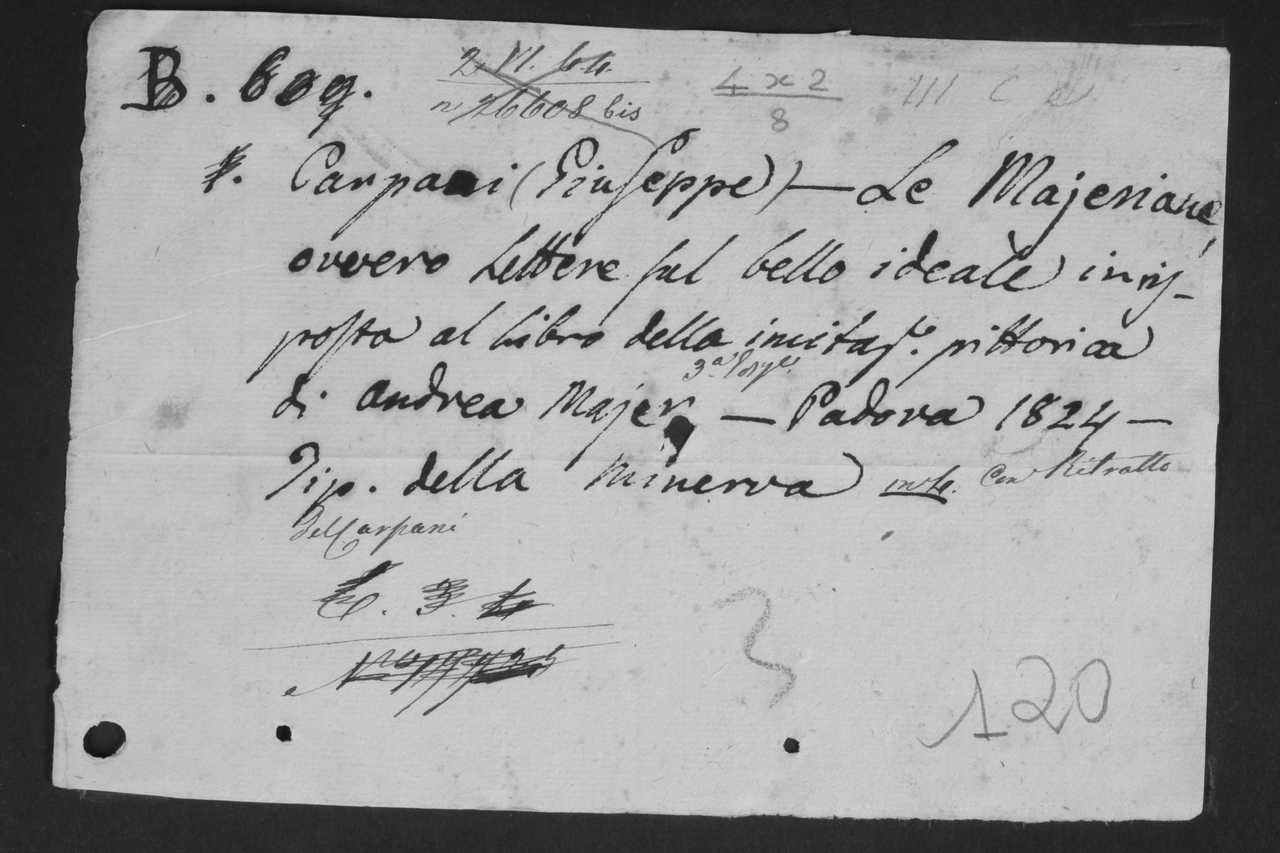 B. 609.
n° 26608 bis
4 x 2
8
III C
Carpani (Giuseppe) — Le Majeriane
ovvero Lettere sul bello ideale in ris-
posta al libro della imitaz.e pittorica
3.a
di Andrea Majer — Padova 1824 —
Tip. della Minerva in 8. Con Ritratto
del Carpani
3
120